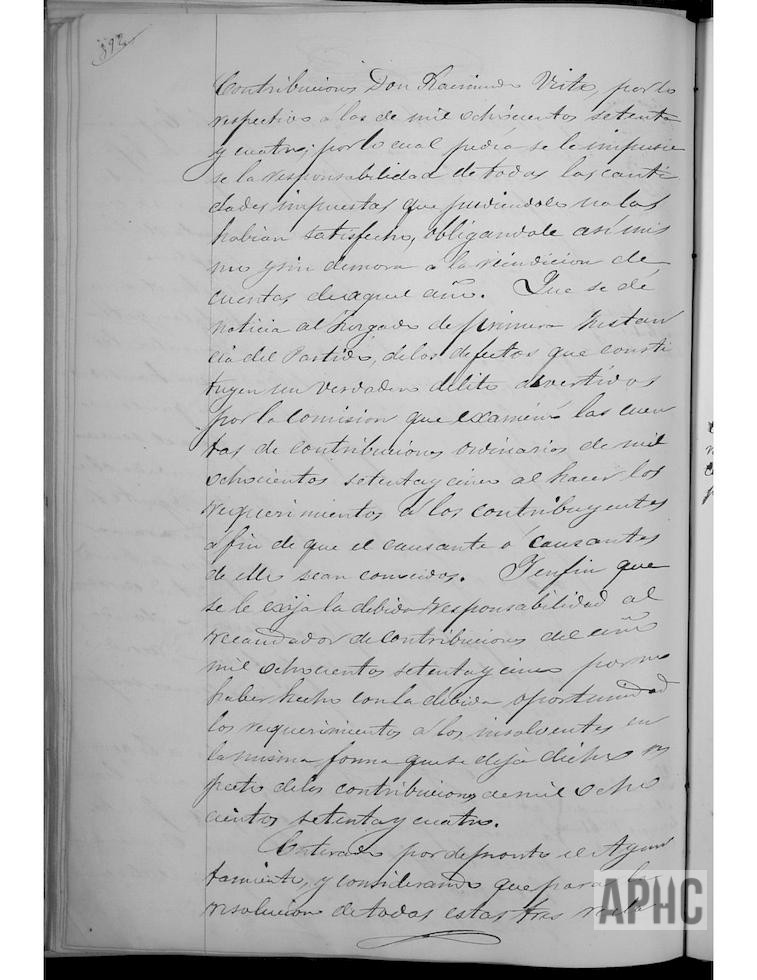 Contribuciones Don Raimundo Vito, por lo
respectivo á las de mil ochocientos setenta
y cuatro; por lo cual pedia se le impusie
se la responsabilidad de todas las canti
dades impuestas que pudiendolo no las
habian satisfecho, obligandole asi mis
mo y sin demora á la rendicion de
cuentas de aquel año. Que se dé
noticia al Juzgado de primera Instan
cia del Partido, de los defectos que consti
tuyen un verdadero delito advertidos
por la Comision que examinó las cuen
tas de contribuciones ordinarias de mil
ochocientos setenta y cinco al hacer los
requerimientos á los contribuyentes
á fin de que el causante ó causantes
de ello sean conocidos. Y en fin que
se le exija la debida responsabilidad al
recaudador de contribuciones del año
mil ochocientos setenta y cinco por no
haber hecho con la debida oportunidad
los requerimientos á los insolventes en
la misma forma que se deja dicho res
pecto de las contribuciones de mil ocho
cientos setenta y cuatro.
Enterado por de pronto el Ayun
tamiento, y considerando que para la
resolucion de todas estas tres
APHC